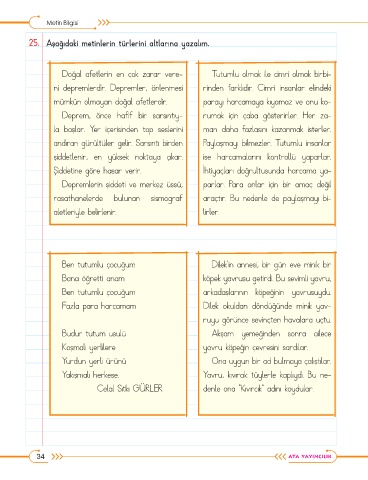 Metin Bilgisi
25. Aşağıdaki metinlerin türlerini altlarına yazalım.
Doğal afetlerin en çok zarar vere-
ni depremlerdir. Depremler, önlenmesi
mümkün olmayan doğal afetlerdir.
Deprem, önce hafif bir sarsıntıy-
la başlar. Yer içerisinden top seslerini
andıran gürültüler gelir. Sarsıntı birden
şiddetlenir, en yüksek noktaya çıkar.
Şiddetine göre hasar verir.
Depremlerin şiddeti ve merkez üssü,
rasathanelerde bulunan sismograf
aletleriyle belirlenir.
Tutumlu olmak ile cimri olmak birbi-
rinden farklıdır. Cimri insanlar elindeki
parayı harcamaya kıyamaz ve onu ko-
rumak için çaba gösterirler. Her za-
man daha fazlasını kazanmak isterler.
Paylaşmayı bilmezler. Tutumlu insanlar
ise harcamalarını kontrollü yaparlar.
İhtiyaçları doğrultusunda harcama ya-
parlar. Para onlar için bir amaç değil
araçtır. Bu nedenle de paylaşmayı bi-
lirler.
Ben tutumlu çocuğum
Bana öğretti anam
Ben tutumlu çocuğum
Fazla para harcamam
Budur tutum usulü
Koşmalı yerlilere
Yurdun yerli ürünü
Yakışmalı herkese.
Celal Sıtkı GÜRLER
Dilek'in annesi, bir gün eve minik bir
köpek yavrusu getirdi. Bu sevimli yavru,
arkadaşlarının köpeğinin yavrusuydu.
Dilek okuldan döndüğünde minik yav-
ruyu görünce sevinçten havalara uçtu.
Akşam yemeğinden sonra ailece
yavru köpeğin çevresini sardılar.
Ona uygun bir ad bulmaya çalıştılar.
Yavru, kıvırcık tüylerle kaplıydı. Bu ne-
denle ona "Kıvırcık" adını koydular.
34
ATA YAYINCILIK